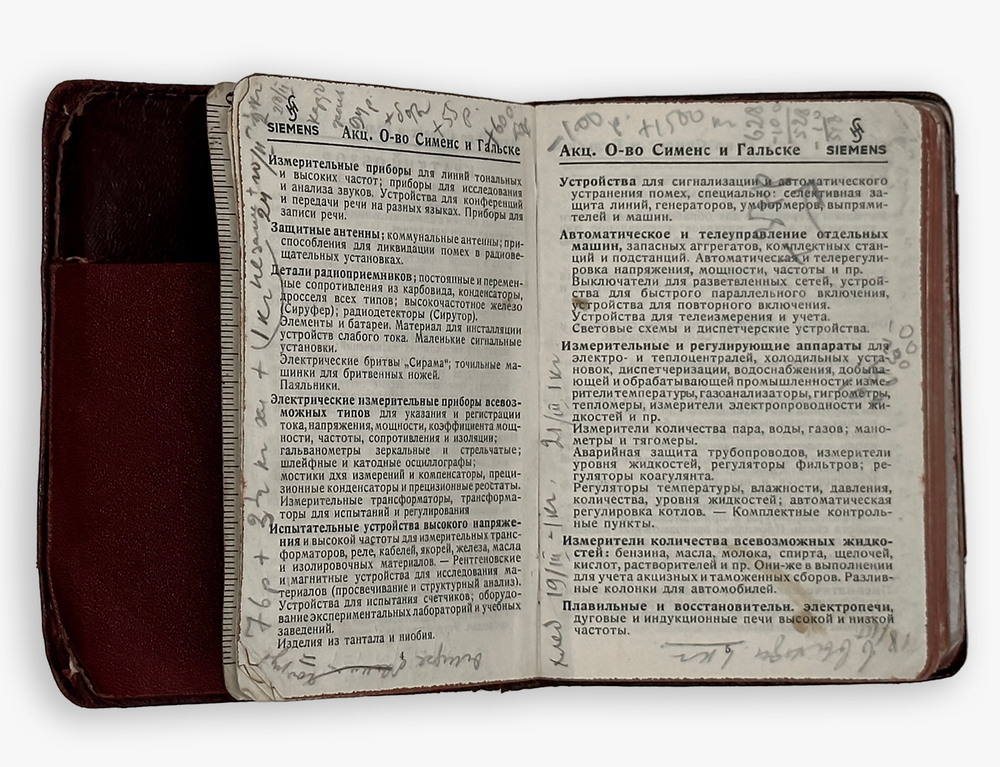 SIEMENS
Акц. О-во Сименс и Гальске
Измерительные приборы для линий тональных
и высоких частот; приборы для исследования
и анализа звуков. Устройства для конференций
и передачи речи на разных языках. Приборы для
записи речи.
Защитные антенны; коммунальные антенны; при-
способления для ликвидации помех в радиове-
щательных установках.
Детали радиоприемников; постоянные и перемен-
ные сопротивления из карбовида, конденсаторы,
дросселя всех типов; высокочастотное железо
(Сируфер); радиодетекторы (Сирутор).
Элементы и батареи. Материал для инсталляции
устройств слабого тока. Маленькие сигнальные
установки.
Электрические бритвы „Сирама“; точильные ма-
шинки для бритвенных ножей.
Паяльники.
Электрические измерительные приборы всевоз-
можных типов для указания и регистрации
тока, напряжения, мощности, коэффициента мощ-
ности, частоты, сопротивления и изоляции;
гальванометры зеркальные и стрельчатые;
шлейфные и катодные осциллографы;
мостики для измерений и компенсаторы, преци-
зионные конденсаторы и прецизионные реостаты.
Измерительные трансформаторы, трансформа-
торы для испытаний и регулирования
Испытательные устройства высокого напряже-
ния и высокой частоты для измерительных транс-
форматоров, реле, кабелей, якорей, железа, масла
и изолировочных материалов. — Рентгеновские
и магнитные устройства для исследования ма-
териалов (просвечивание и структурный анализ).
Устройства для испытания счетчиков; оборудо-
вание экспериментальных лабораторий и учебных
заведений.
Изделия из тантала и ниобия.
Акц. О-во Сименс и Гальске
SIEMENS
Устройства для сигнализации и автоматического
устранения помех, специально: селективная за-
щита линий, генераторов, умформеров, выпрями-
телей и машин.
Автоматическое и телеуправление отдельных
машин, запасных аггрегатов, комплектных стан-
ций и подстанций. Автоматическая и телерегули-
ровка напряжения, мощности, частоты и пр.
Выключатели для разветвленных сетей, устрой-
ства для быстрого параллельного включения,
устройства для повторного включения.
Устройства для телеизмерения и учета.
Световые схемы и диспетчерские устройства.
Измерительные и регулирующие аппараты для
электро- и теплоцентралей, холодильных уста-
новок, диспетчеризации, водоснабжения, добыва-
ющей и обрабатывающей промышленности: изме-
рители температуры, газоанализаторы, гигрометры,
тепломеры, измерители электропроводности жи-
дкостей и пр.
Измерители количества пара, воды, газов; мано-
метры и тягомеры.
Аварийная защита трубопроводов, измерители
уровня жидкостей, регуляторы фильтров; ре-
гуляторы коагулянта.
Регуляторы температуры, влажности, давления,
количества, уровня жидкостей; автоматическая
регулировка котлов. — Комплектные контроль-
ные пункты.
Измерители количества всевозможных жидко-
стей: бензина, масла, молока, спирта, щелочей,
кислот, растворителей и пр. Они-же в выполнении
для учета акцизных и таможенных сборов. Разлив-
ные колонки для автомобилей.
Плавильные и восстановительн. электропечи,
дуговые и индукционные печи высокой и низкой
частоты.